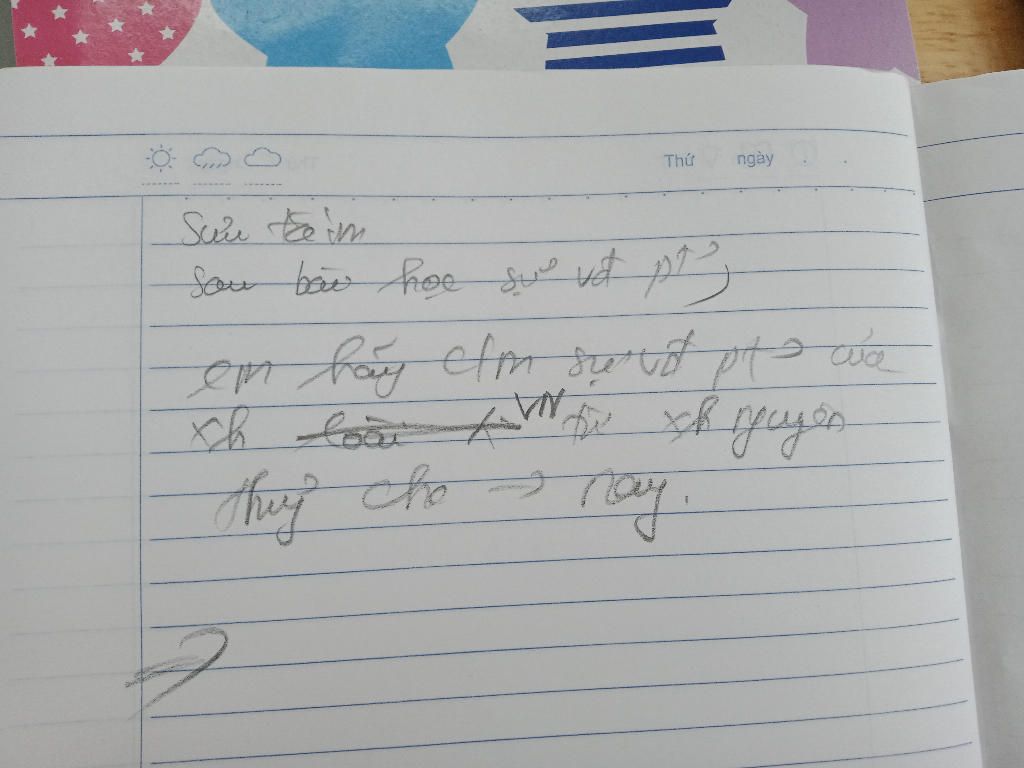 Thứ ngày . .
Sưu tầm
Sau bài học sự vđ pt,
em hãy c/m sự vđ pt của
xh VN từ xh nguyên
thuỷ cho → nay.